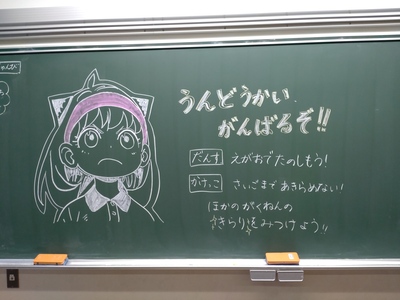 うんどうかい
がんばるぞ!!
だんす えがおでたのしもう!
かけっこ さいごまであきらめない!
ほかのがくねんの
きらりをみつけよう!!